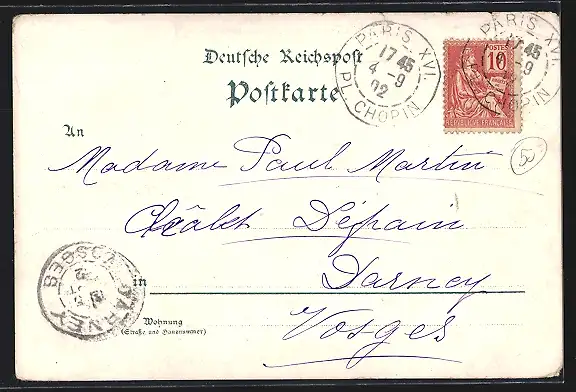 Deutsche Reichspost
Postkarte
PARIS XVI.
17 45
4 - 9
02
PL. CHOPIN
PARIS XVI.
45
9
CHOPIN
POSTES
10
REPUBLIQUE FRANÇAISE
50
An
Madame Paul Martin
Châlet Défrain
in Darney
Vosges
Wohnung
(Straße und Hausnummer)
DARNEY
VOSGES